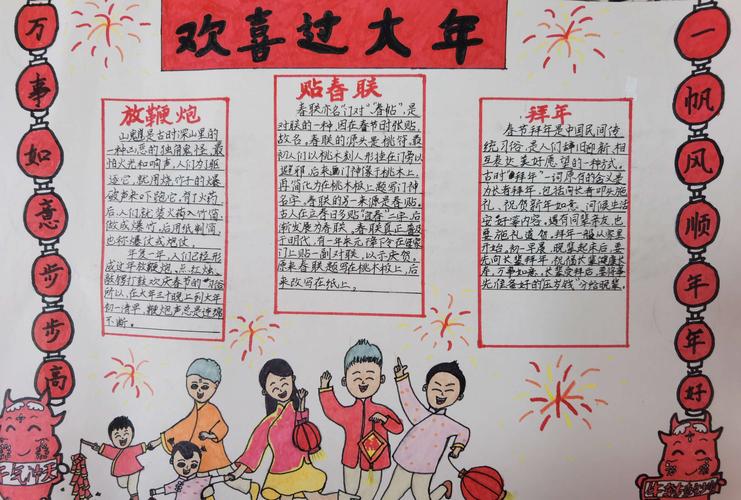 欢喜过大年
万事如意步步高
放鞭炮
山魈是古时深山里的
一种凶恶的独角鬼怪,最
怕火光和响声,人们为驱
逐它,就用烧竹子的爆
破声来吓跑它,有了火药
后,人们就装火药入竹筒,
做成爆竹,后用纸制筒,
也称爆仗或炮仗。
年复一年,人们已经形
成过年放鞭炮、点红烛、
敲锣打鼓欢庆春节的习俗
所以,在大年三十晚上到大年
初一清早,鞭炮声总是连绵
不断。
贴春联
春联亦名"门对"、"春帖",是
对联的一种,因在春节时张贴,
故名。春联的源头是桃符。最
初人们以桃木刻人形挂在门旁以
避邪,后来画门神像于桃木上,
再简化为在桃木板上题写门神
名字。春联的另一来源是春贴。
古人在立春日多贴"宜春"二字,后
渐发展为春联。春联真正普及
于明代,有一年朱元璋下令在每家
门上贴一副对联,以示庆贺。
原来春联题写在桃木板上,后
来改写在纸上。
拜年
春节拜年是中国民间传
统习俗,是人们辞旧迎新、相
互表达美好愿望的一种方式。
古时"拜年"一词原有的含义是
为长者拜年,包括向长者叩头施
礼、祝贺新年如意、问候生活
安好等内容。遇有同辈亲友,也
要施礼道贺。拜年一般从家里
开始。初一早晨,晚辈起床后,要
先向长辈拜年,祝福长辈健康长
寿,万事如意。长辈受拜后,要将事
先准备好的"压岁钱"分给晚辈。
一帆风顺年年好
牛气冲天